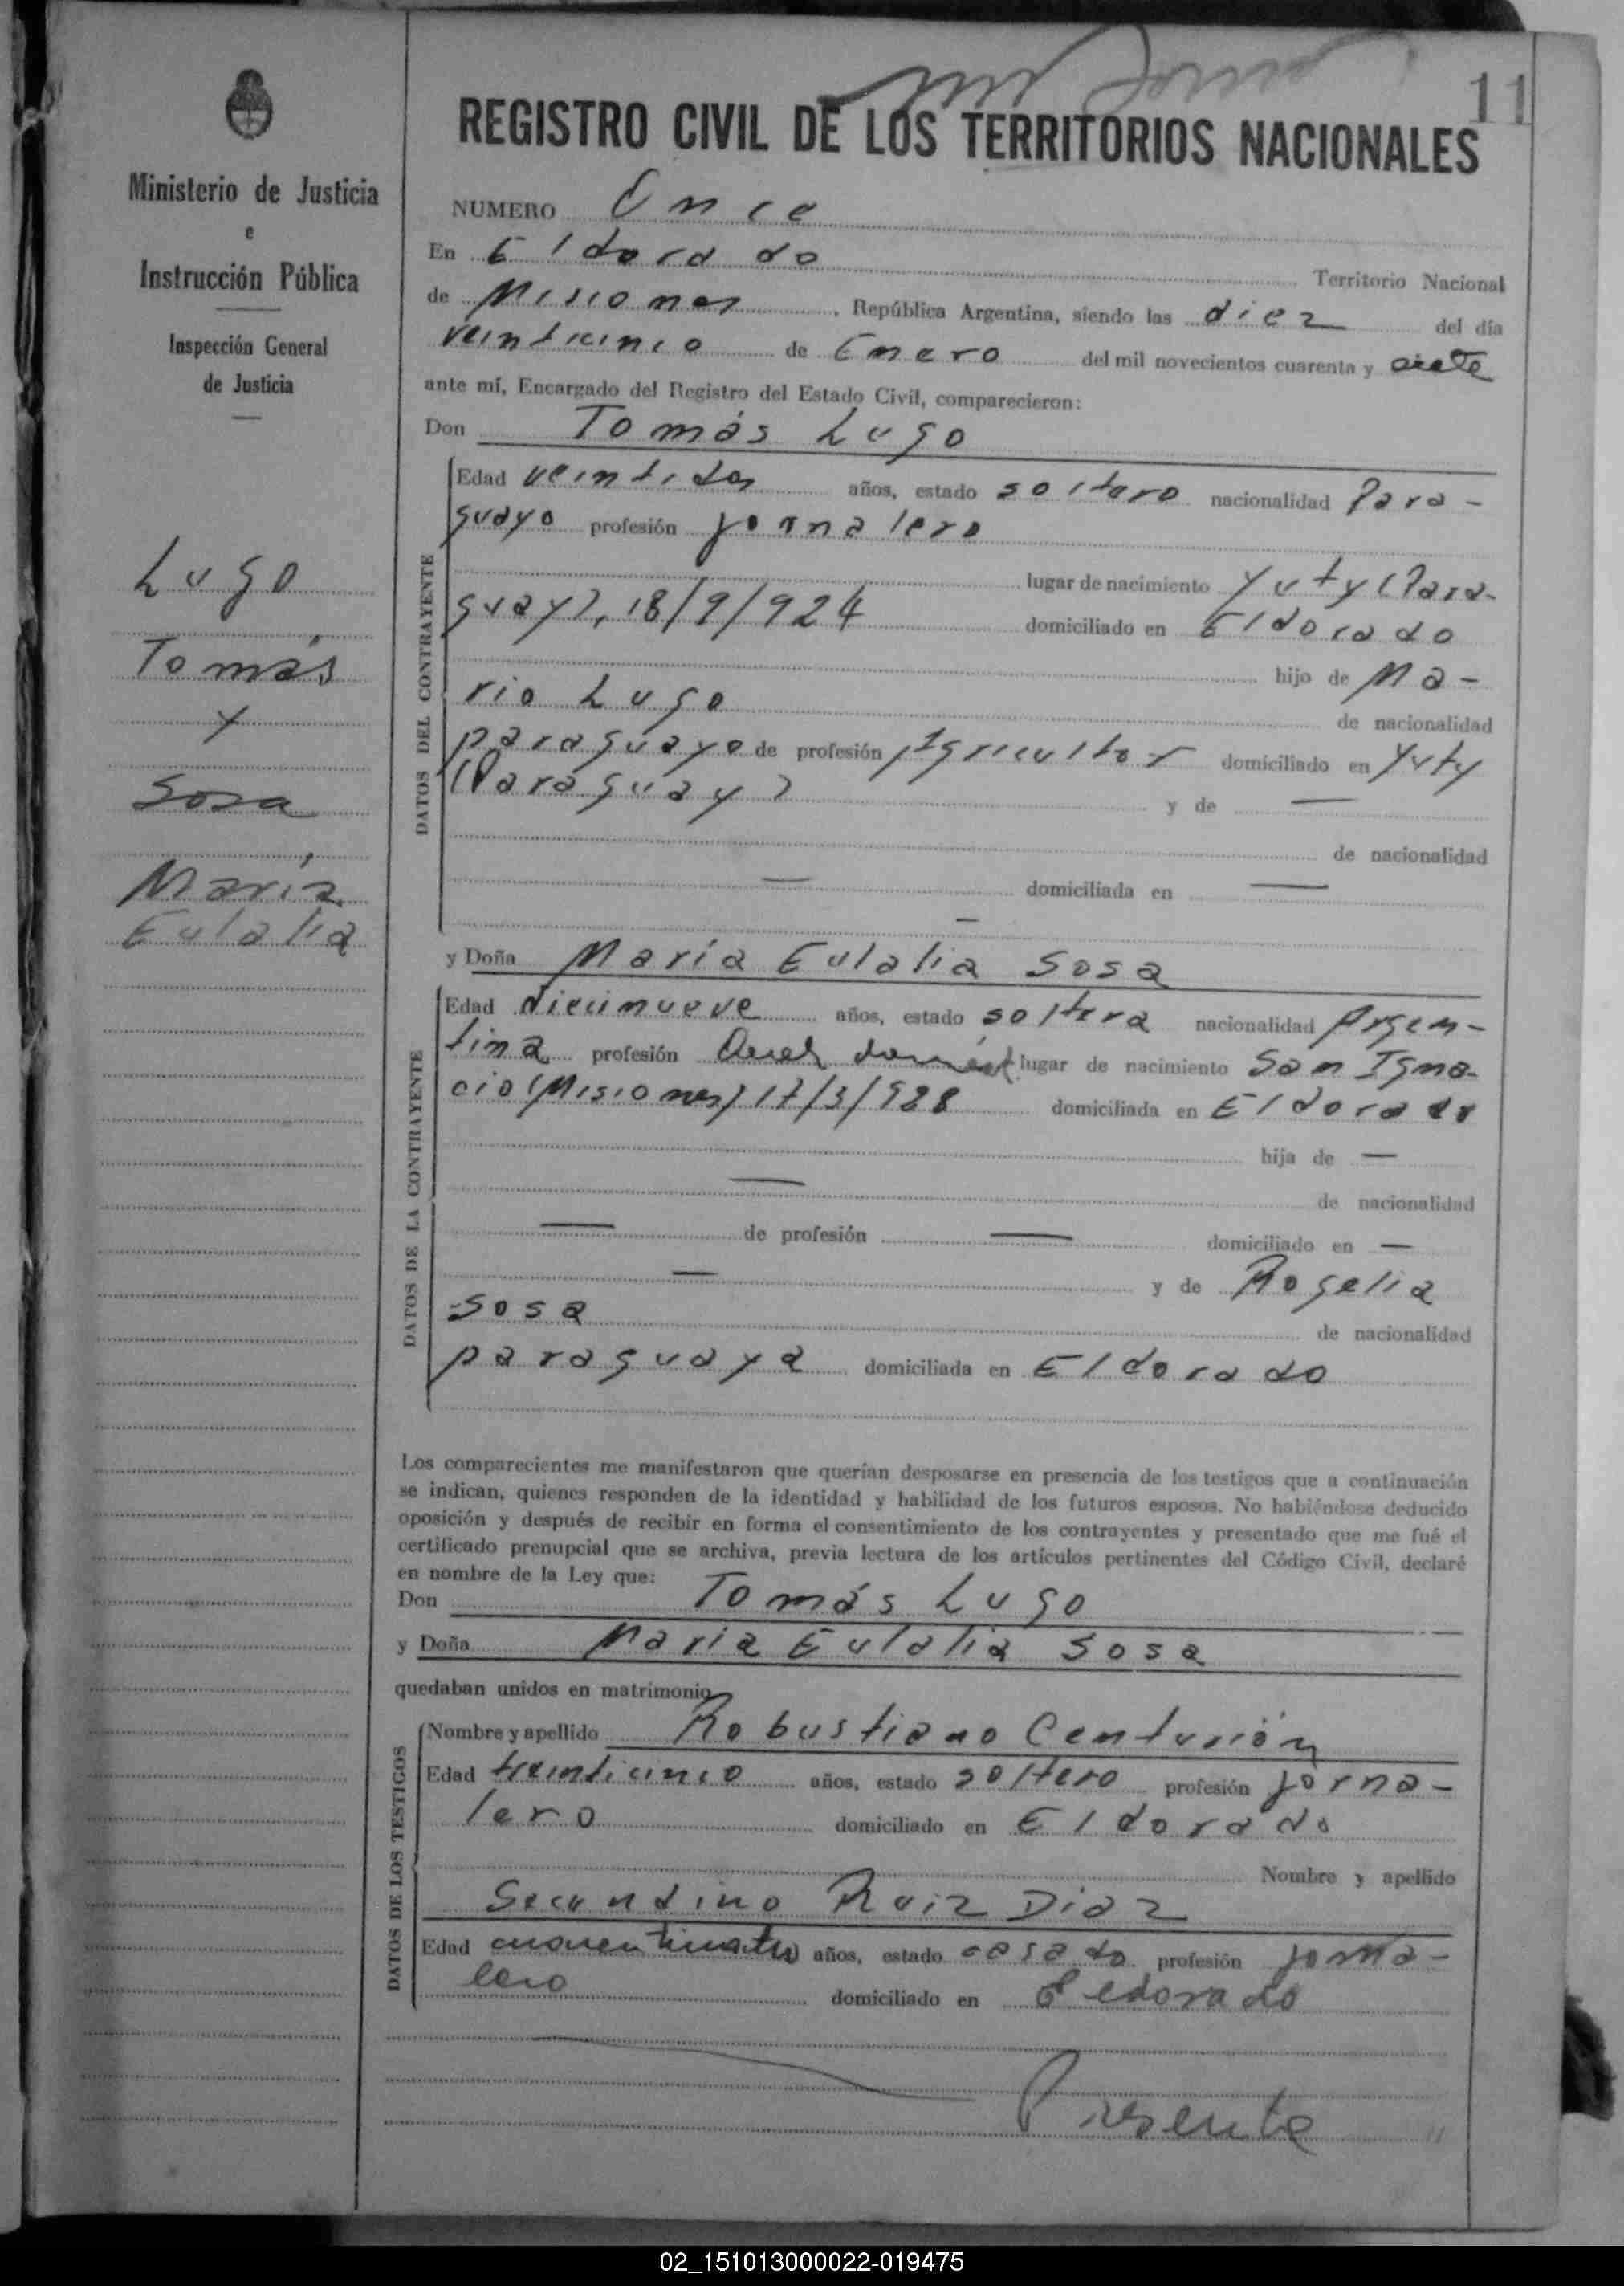 11
REGISTRO CIVIL DE LOS TERRITORIOS NACIONALES
Ministerio de Justicia
e
Instrucción Pública
Inspección General
de Justicia
Lugo
Tomás
y
Sosa
María
Eulalia
NUMERO Once
En Eldorado Territorio Nacional
de Misiones, República Argentina, siendo las diez del día
veinticinco de Enero del mil novecientos cuarenta y siete
ante mí, Encargado del Registro del Estado Civil, comparecieron:
Don Tomás Lugo
DATOS DEL CONTRAYENTE
Edad veintidos años, estado soltero nacionalidad Para-
guayo profesión jornalero
lugar de nacimiento Yuty (Para-
guay), 18/9/924 domiciliado en Eldorado
hijo de Ma-
rio Lugo de nacionalidad
paraguayo de profesión Agricultor domiciliado en Yuty
(Paraguay) y de —
de nacionalidad
— domiciliada en —
—
y Doña María Eulalia Sosa
DATOS DE LA CONTRAYENTE
Edad diecinueve años, estado soltera nacionalidad Argen-
tina profesión Queh. domést. lugar de nacimiento San Igna-
cio (Misiones) 17/3/928 domiciliada en Eldorado
hija de —
— de nacionalidad
— de profesión — domiciliado en —
— y de Rogelia
Sosa de nacionalidad
paraguaya domiciliada en Eldorado
Los comparecientes me manifestaron que querían desposarse en presencia de los testigos que a continuación
se indican, quienes responden de la identidad y habilidad de los futuros esposos. No habiéndose deducido
oposición y después de recibir en forma el consentimiento de los contrayentes y presentado que me fué el
certificado prenupcial que se archiva, previa lectura de los artículos pertinentes del Código Civil, declaré
en nombre de la Ley que:
Don Tomás Lugo
y Doña María Eulalia Sosa
quedaban unidos en matrimonio
DATOS DE LOS TESTIGOS
Nombre y apellido Robustiano Centurión
Edad treinticinco años, estado soltero profesión jorna-
lero domiciliado en Eldorado
Nombre y apellido
Secundino Ruiz Diaz
Edad cuarenticuatro años, estado casado profesión jorna-
lero domiciliado en Eldorado
Presente
02_151013000022-019475